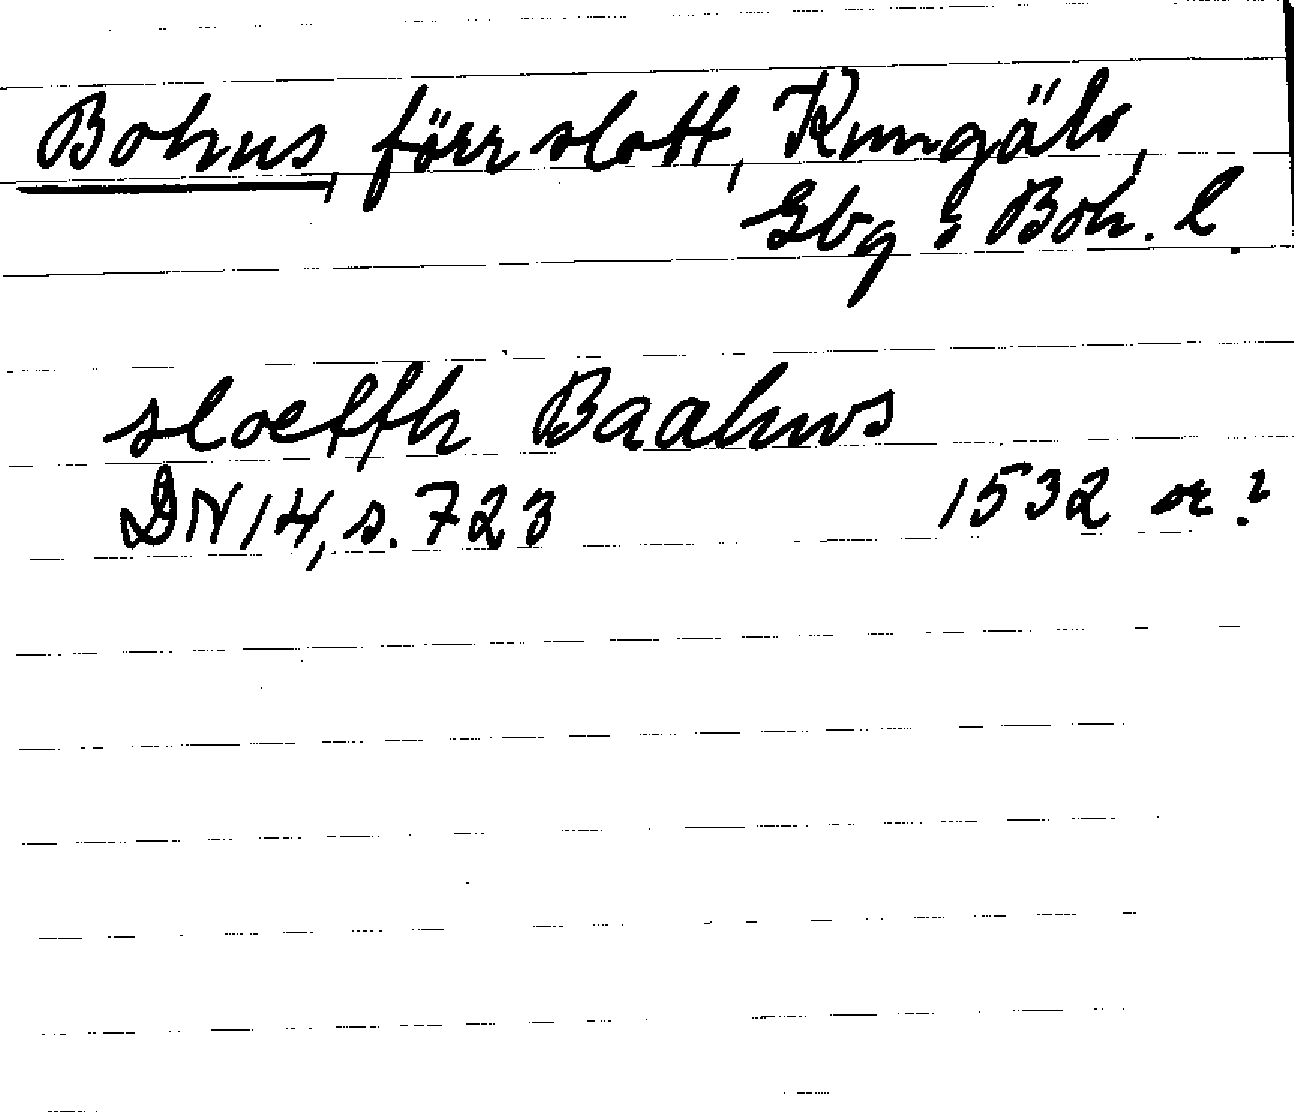 Bohus, förr slott, Kungälv,
Gbg & Boh. l.
sloetth Baahws
DN 14, s. 723 1532 or.?